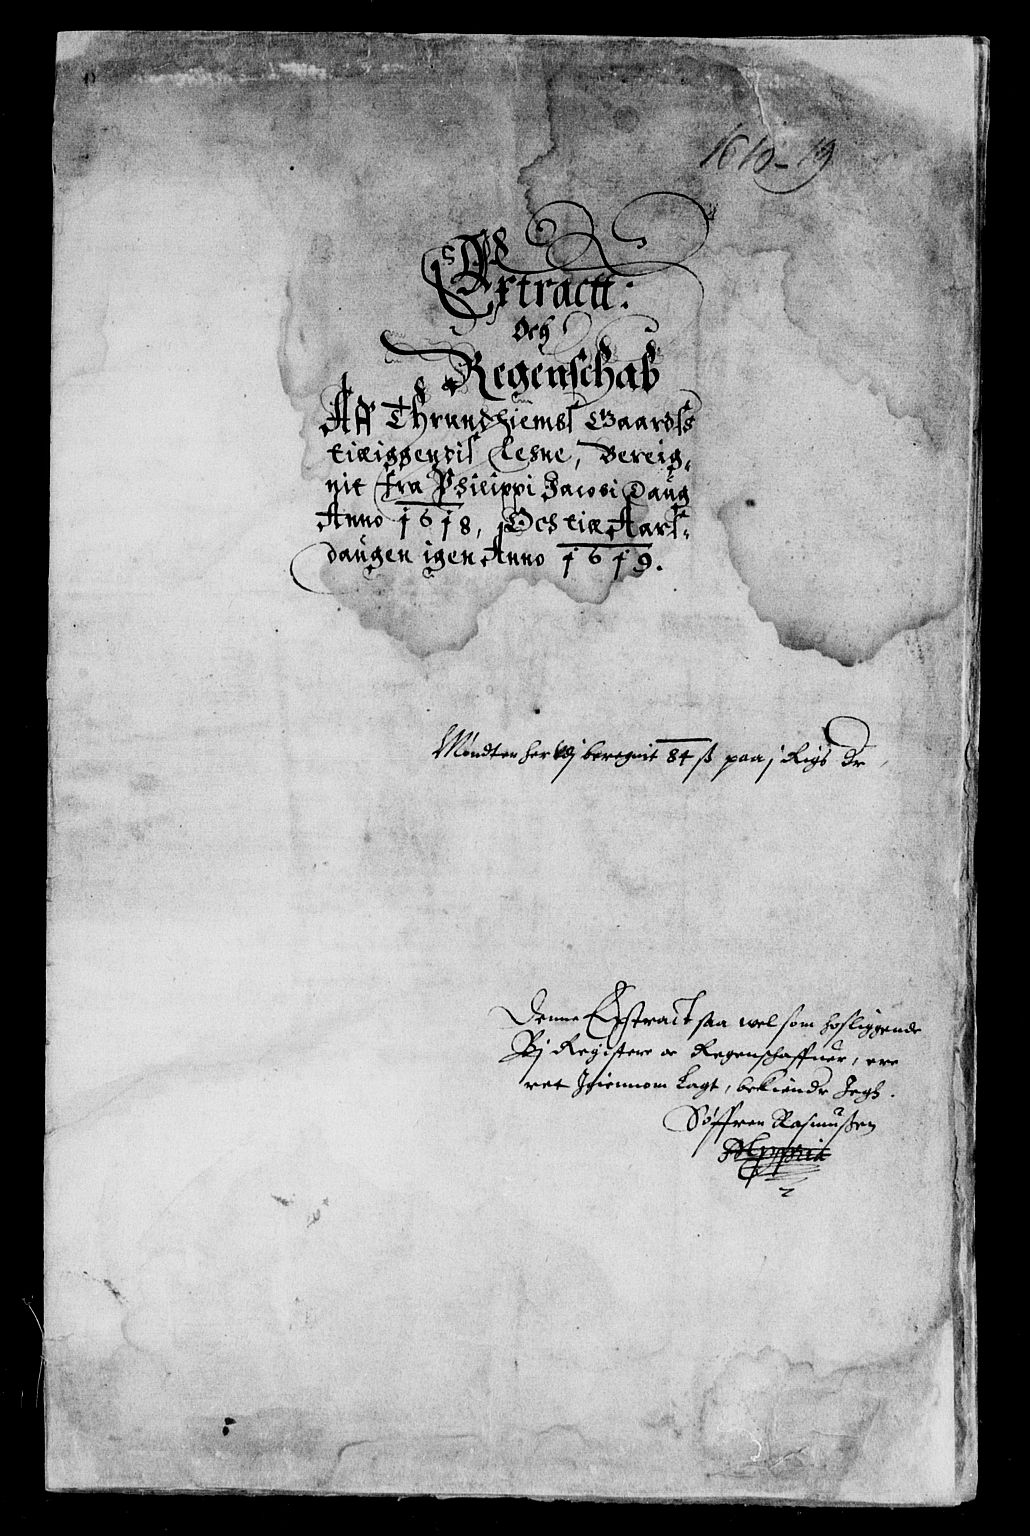 1618-19
Extractt:
Och
Regenschab
Aff Thrundhiembs Gaardss
tilliggendis Lehne, Bereig,
nit fra Philippi Jacobi Daug
Anno 1618, Och till Aars,
daugen igen Anno 1619.
Mønten her udj beregnit 84 ß paa j Rigs Dr
Denne Extract saa wel som hosliggende
Vj Registere oc Regenschaffuer, ere
ret Igiennom Lagt, bekiende Jegh.
Søffren Rasmußen